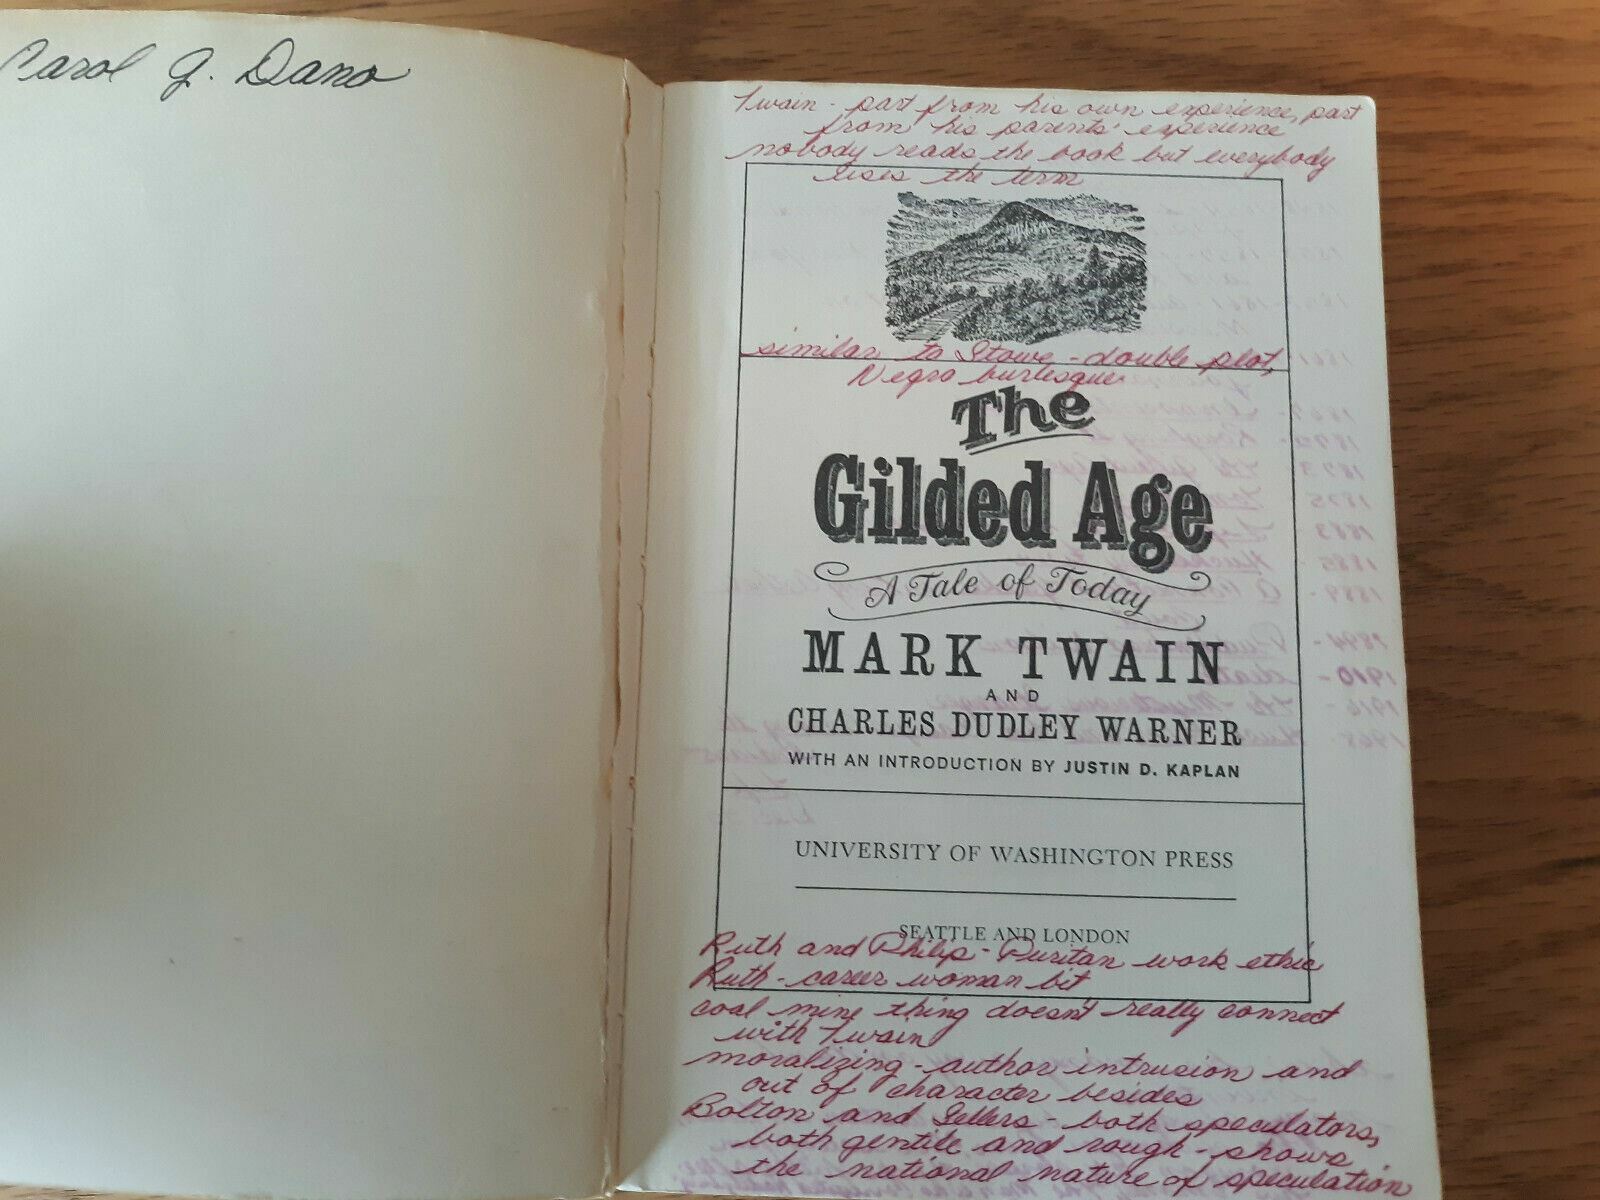 Carol G. Dano
Twain - part from his own experience, part
from his parents' experience
nobody reads the book but everybody
uses the term
similar to Stowe - double plot,
Negro burlesque
The
Gilded Age
A Tale of Today
MARK TWAIN
AND
CHARLES DUDLEY WARNER
WITH AN INTRODUCTION BY JUSTIN D. KAPLAN
UNIVERSITY OF WASHINGTON PRESS
SEATTLE AND LONDON
Ruth and Philip - Puritan work ethic
Ruth - career woman bit
coal mine thing doesn't really connect
with Twain
moralizing - author intrusion and
out of character besides
Bolton and Sellers - both speculators,
both gentile and rough - shows
the national nature of speculation